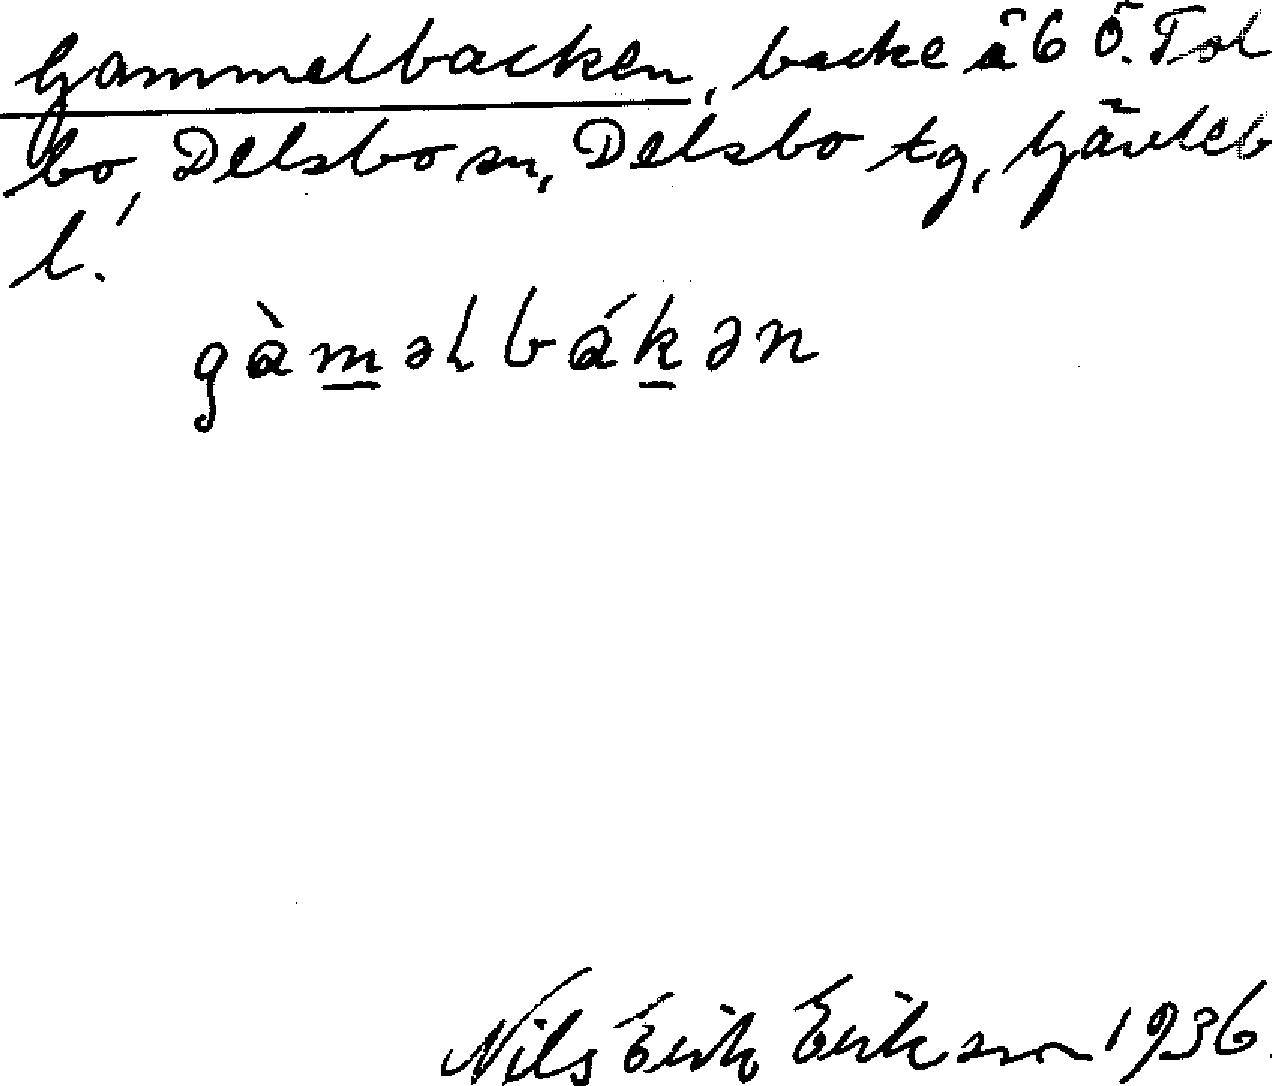 Gammelbacken, backe å 6 Ö. Tol
bo, Delsbo sn, Delsbo tg, Gävleb
l.
gàm̲əlbák̲ən
Nils Erik Erikson 1936.